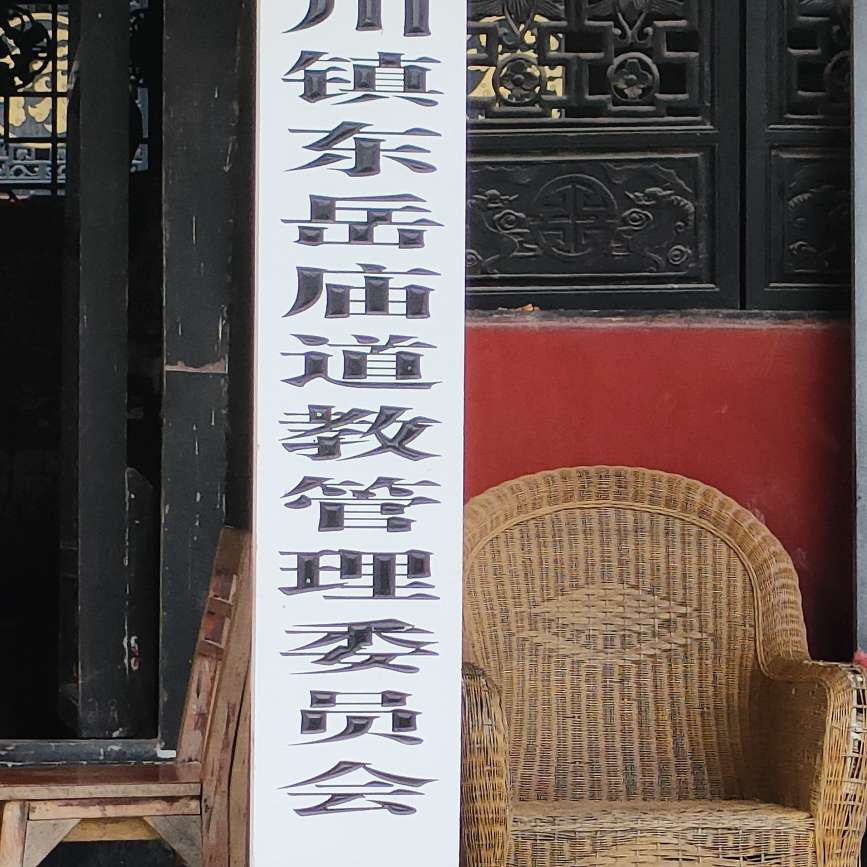 川镇东岳庙道教管理委员会